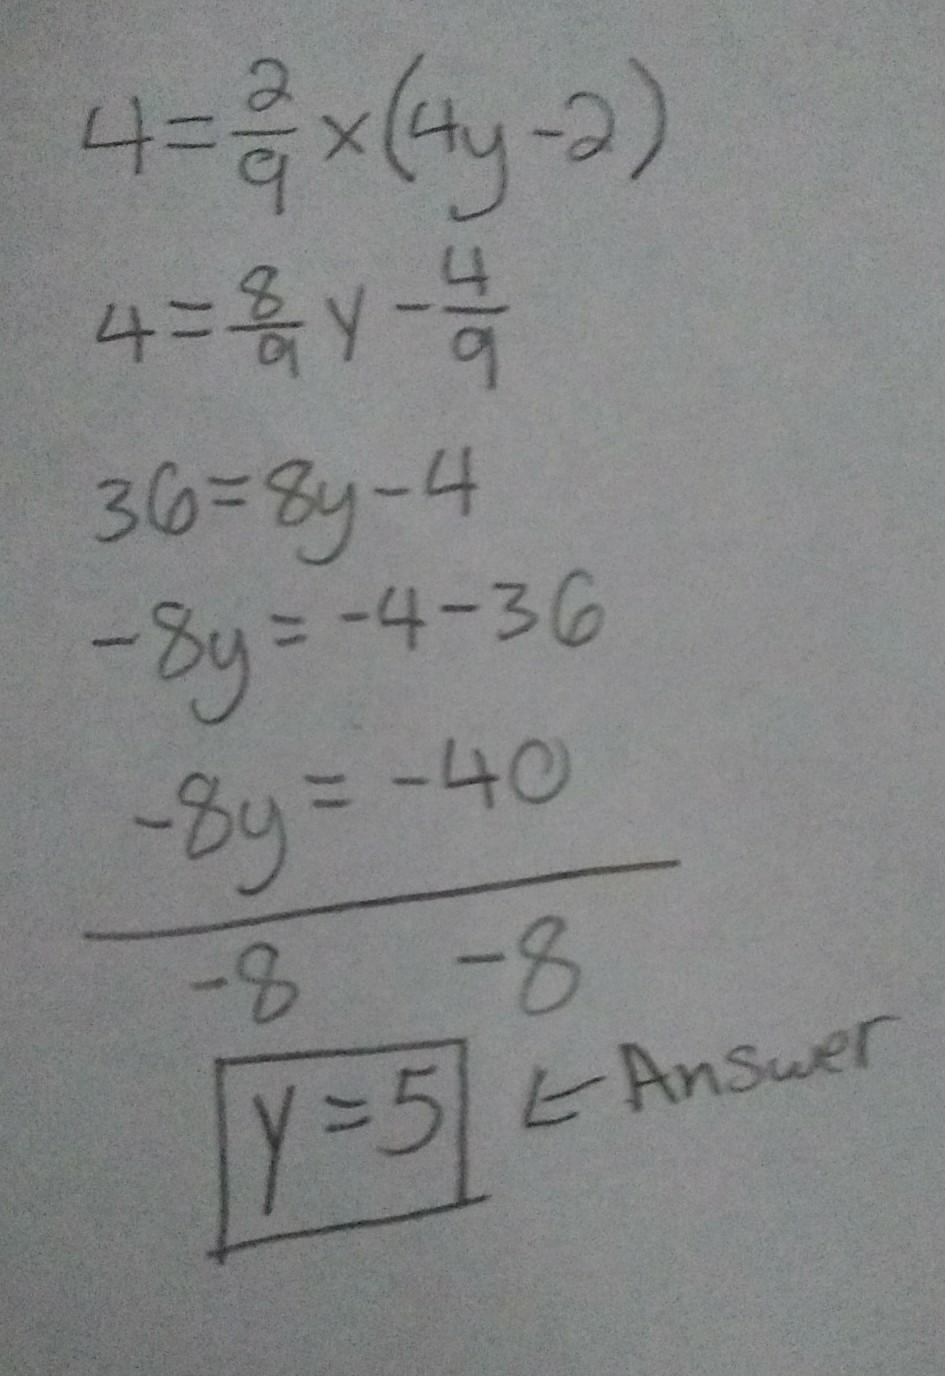 4 = 2/9 × (4y - 2)
4 = 8/9 y - 4/9
36 = 8y - 4
-8y = -4 - 36
-8y = -40
-8 -8
y = 5 ← Answer